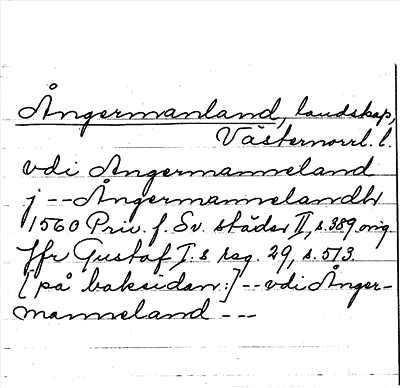 Ångermanland, landskap,
Västernorrl. l.
vdi Angermanneland
j -- Ångermannelandhr
1560 Priv. f. Sv. städer II, s. 389 orig.
Jfr Gustaf I:s reg. 29, s. 513.
[på baksidan:] -- vdi Ånger-
manneland ---